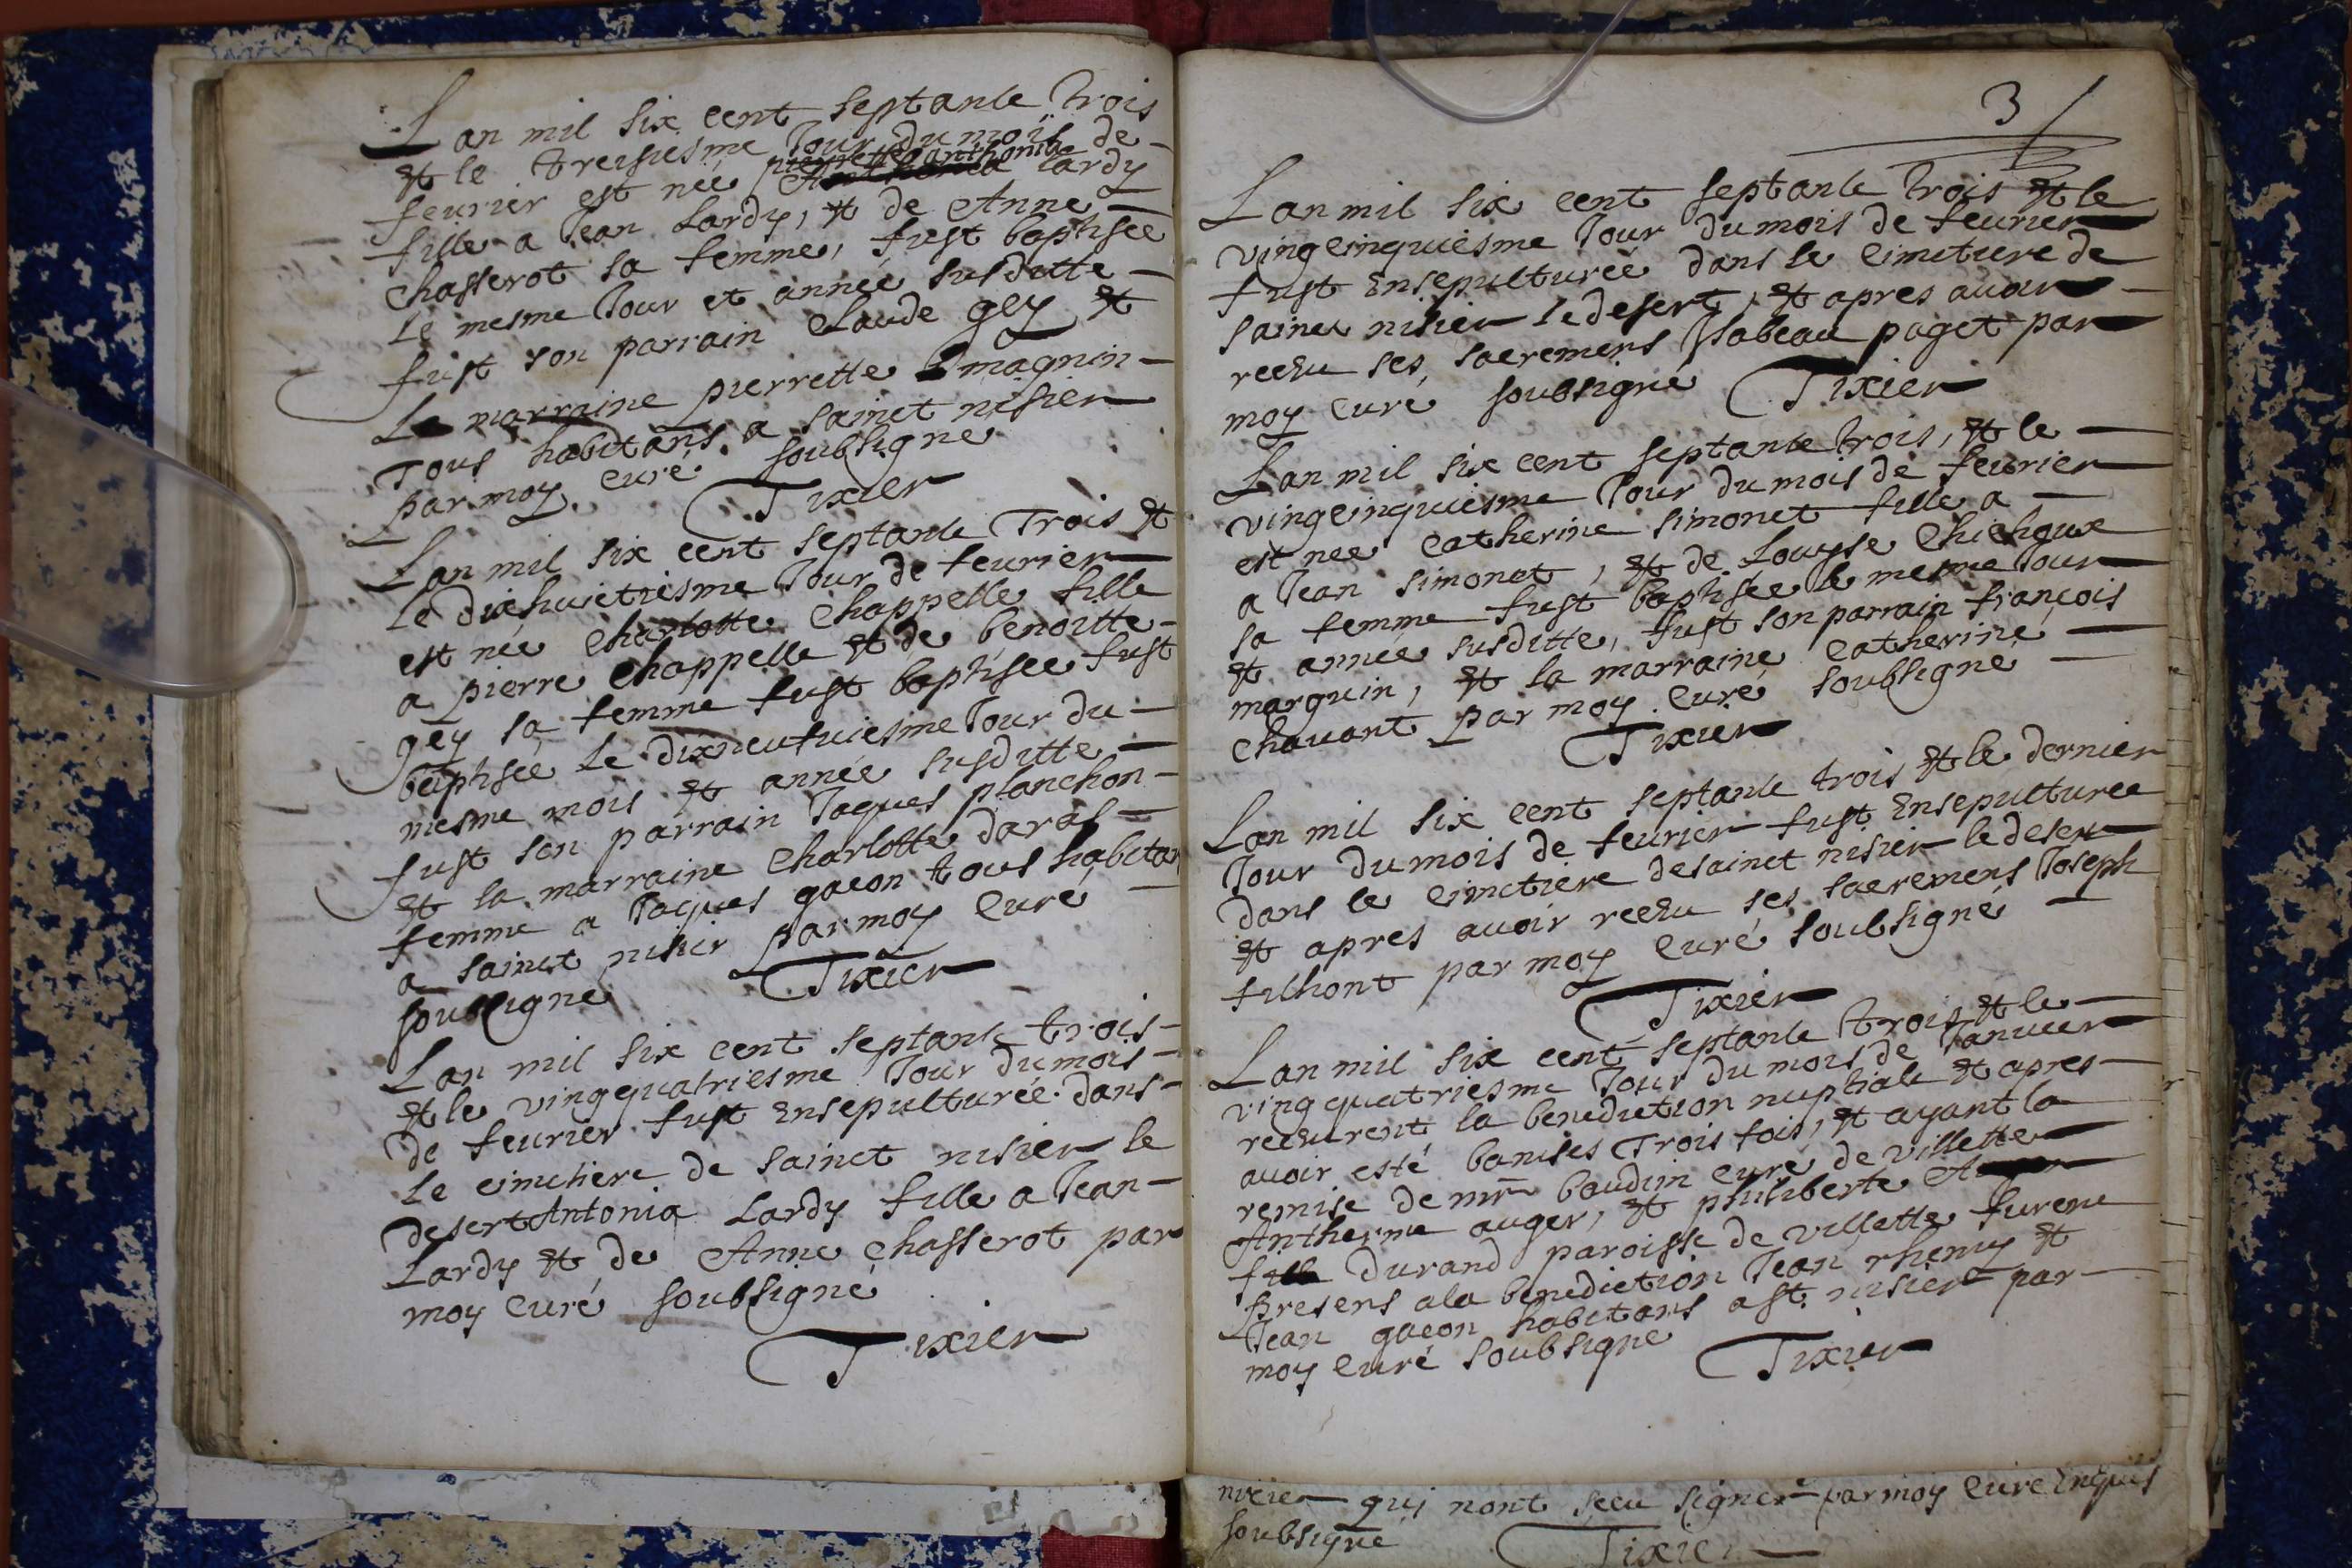 Lan mil six cent septante trois
et le treisiesme Jour du mois de
feurier est née pierrette anthonia lardy
fille a Jean Lardy, et de Anne
chasserot sa femme, fust baptisée
le mesme Jour et année susditte
fust son parrain Claude gey et
La marraine pierrette magnin
Tous habitans a sainct nisier
par moy curé soubsigne
Tixier
Lan mil six cent septante Trois et
le dixhuictiesme Jour de feurier
est née charlotte chappelle fille
a pierre chappelle et de benoitte
gey sa femme fust baptisée fust
baptisée le dixneufuiesme Jour du
mesme mois et année susditte
fust son parrain Jaques planchon
et la marraine charlotte daral
femme a Jaques gacon tous habitan
a sainct nisier par moy curé
soubsigné
Tixier
Lan mil six cent septante trois
et le vingquatriesme Jour du mois
de feurier fust ensepulturée dans
le cimetiere de sainct nisier le
desert Antonia Lardy fille a Jean
Lardy et de Anne chasserot par
moy curé soubsigné
Tixier
3
Lan mil six cent septante trois et le
vingcinquiesme Jour du mois de feurier
fust ensepulturée dans le cimetiere de
sainct nisier le desert, et apres auoir
receu ses sacremens Isabeau paget par
moy curé soubsigné Tixier
Lan mil six cent septante trois, et le
vingcinquiesme Jour du mois de feurier
est nee catherine simonet fille a
a Jean simonet, et de Louyse chichoux
sa femme fust baptisée le mesme Jour
et année susditte, fust son parrain françois
marguin, et la marraine catherine
chauant par moy curé soubsigné
Tixier
Lan mil six cent septante trois et le dernier
Jour du mois de feurier fust ensepulturee
dans le cimetiere de sainct nisier le desert
et apres auoir receu ses sacremens Joseph
filhont par moy curé soubsigné
Tixier
Lan mil six cent septante trois et le
vingquatriesme Jour du mois de Januier
receurent la benediction nuptiale et apres
auoir esté banises Trois fois, et ayant la
remise de mr baudin curé de villette
Antherme auger, et philiberte
fille durand paroisse de villette furent
presens a la benediction Jean rhemy et
Jean gacon habitans a st. nisier par
moy curé soubsigne Tixier
nizier qui nont sceu signer par moy curé
soubsigné Tixier